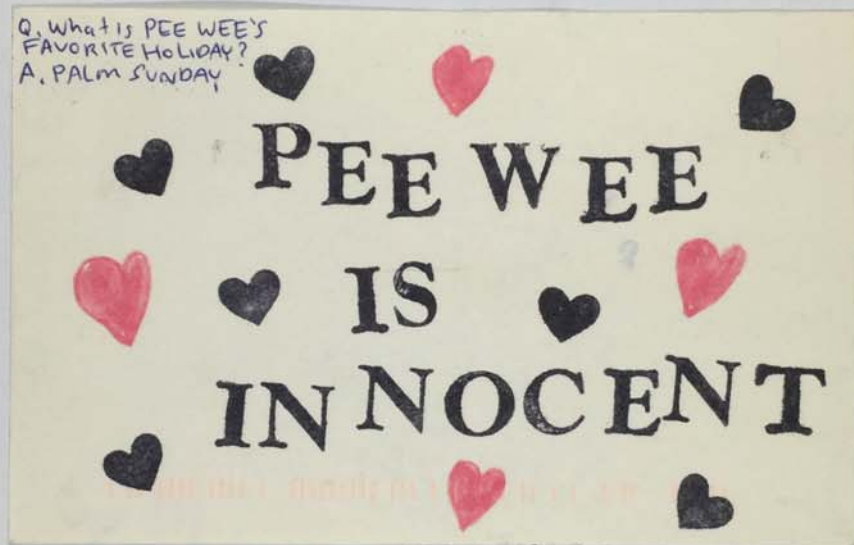 Q. What is PEE WEE'S
FAVORITE HOLIDAY?
A. PALM SUNDAY
PEE WEE
IS
INNOCENT